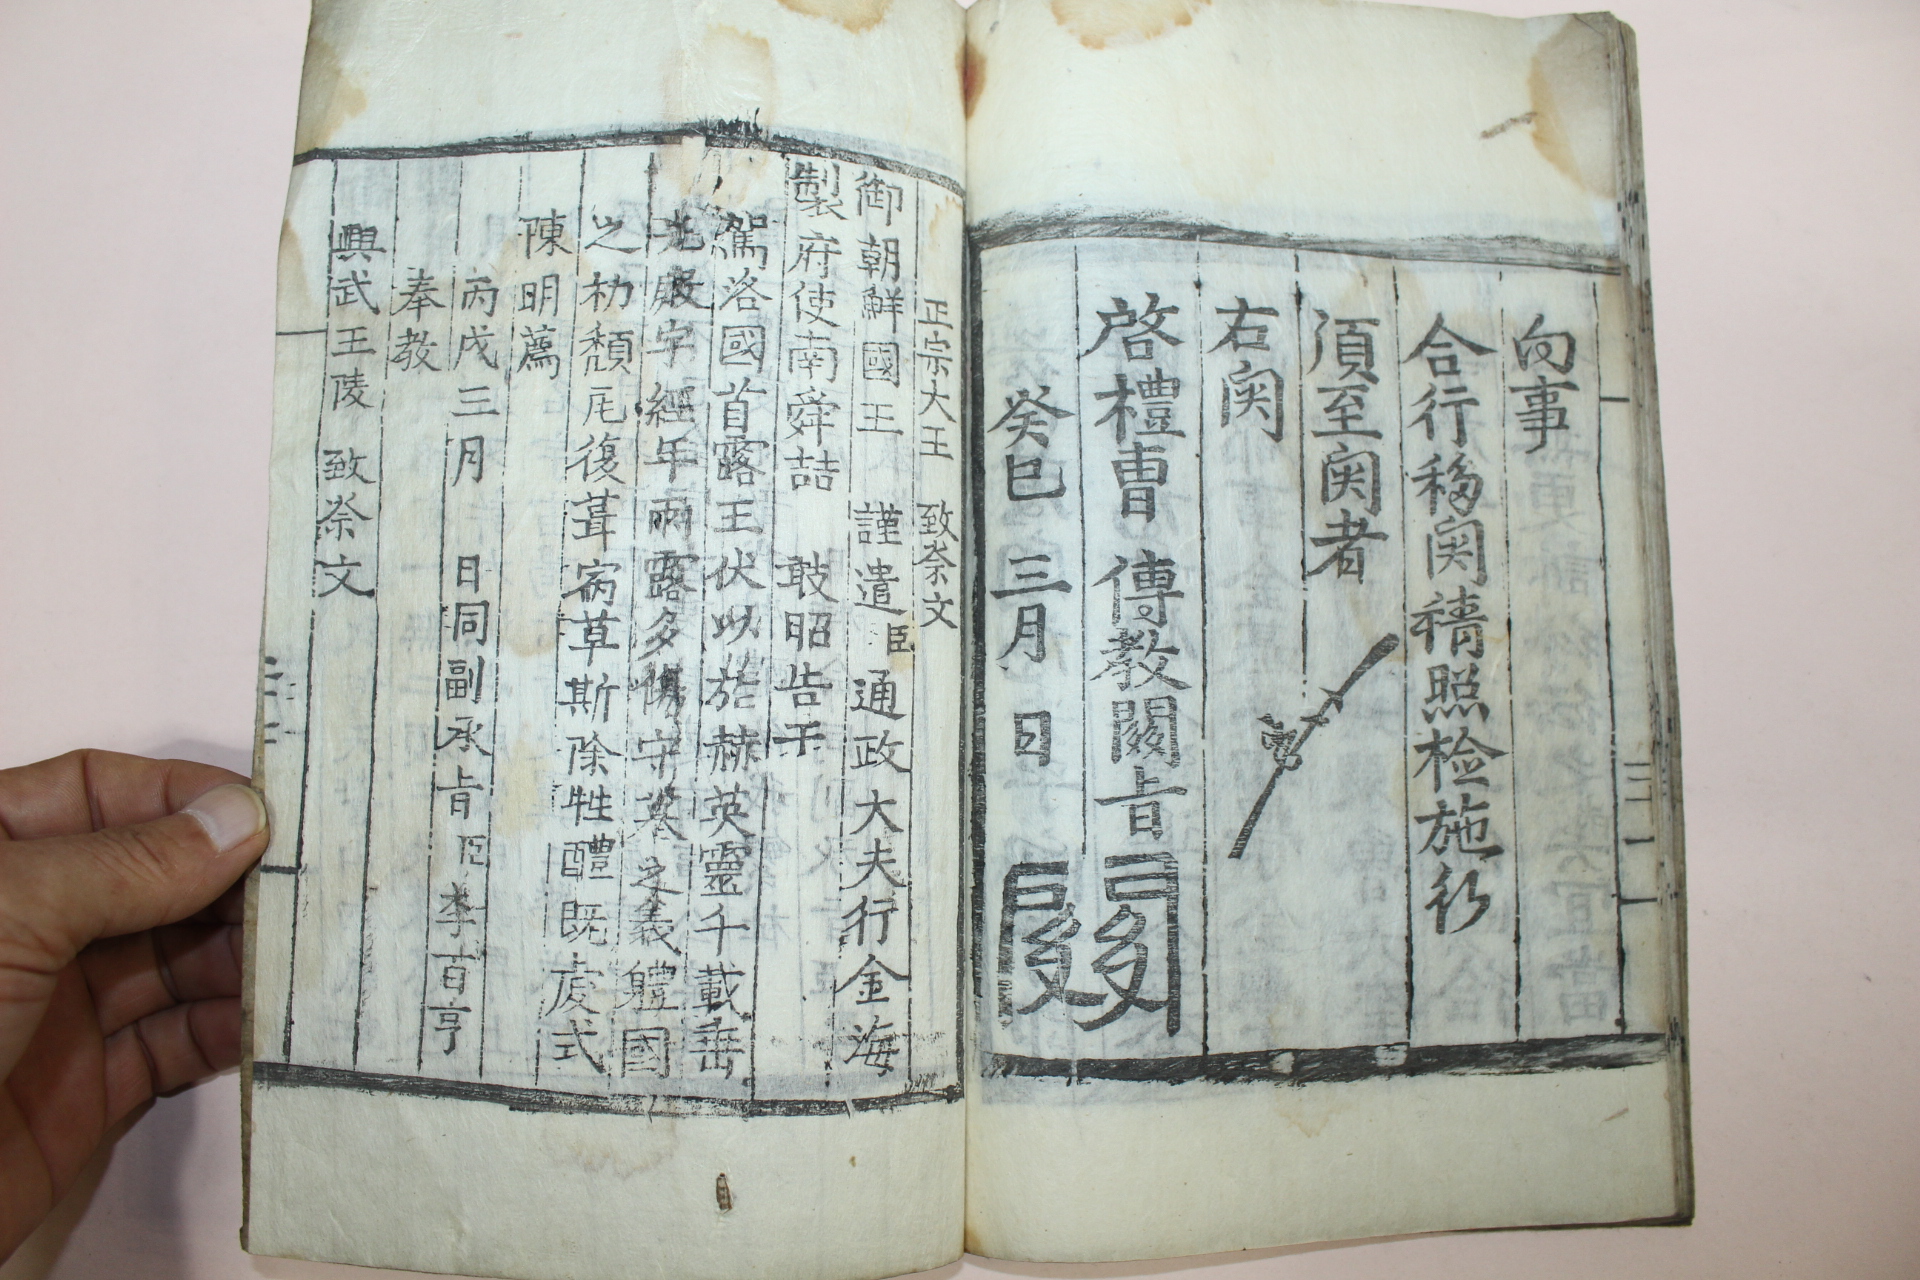 向事
合行移関請照檢施行
須至関者
右関
啓禮曹 傳教関旨
癸巳 三月 日
正宗大王 致祭文
御朝鮮國王 謹遣臣通政大夫行金海
製府使南舜喆 敢昭告于
駕洛國首露王伏以於赫英靈千載垂
光廢字經年雨露多傷守墓之義軆國
之礿頽圮復葺窃草斯除牲醴既虔式
陳明薦
丙戌三月 日同副承旨臣李百亨
奉教
興武王陵 致祭文